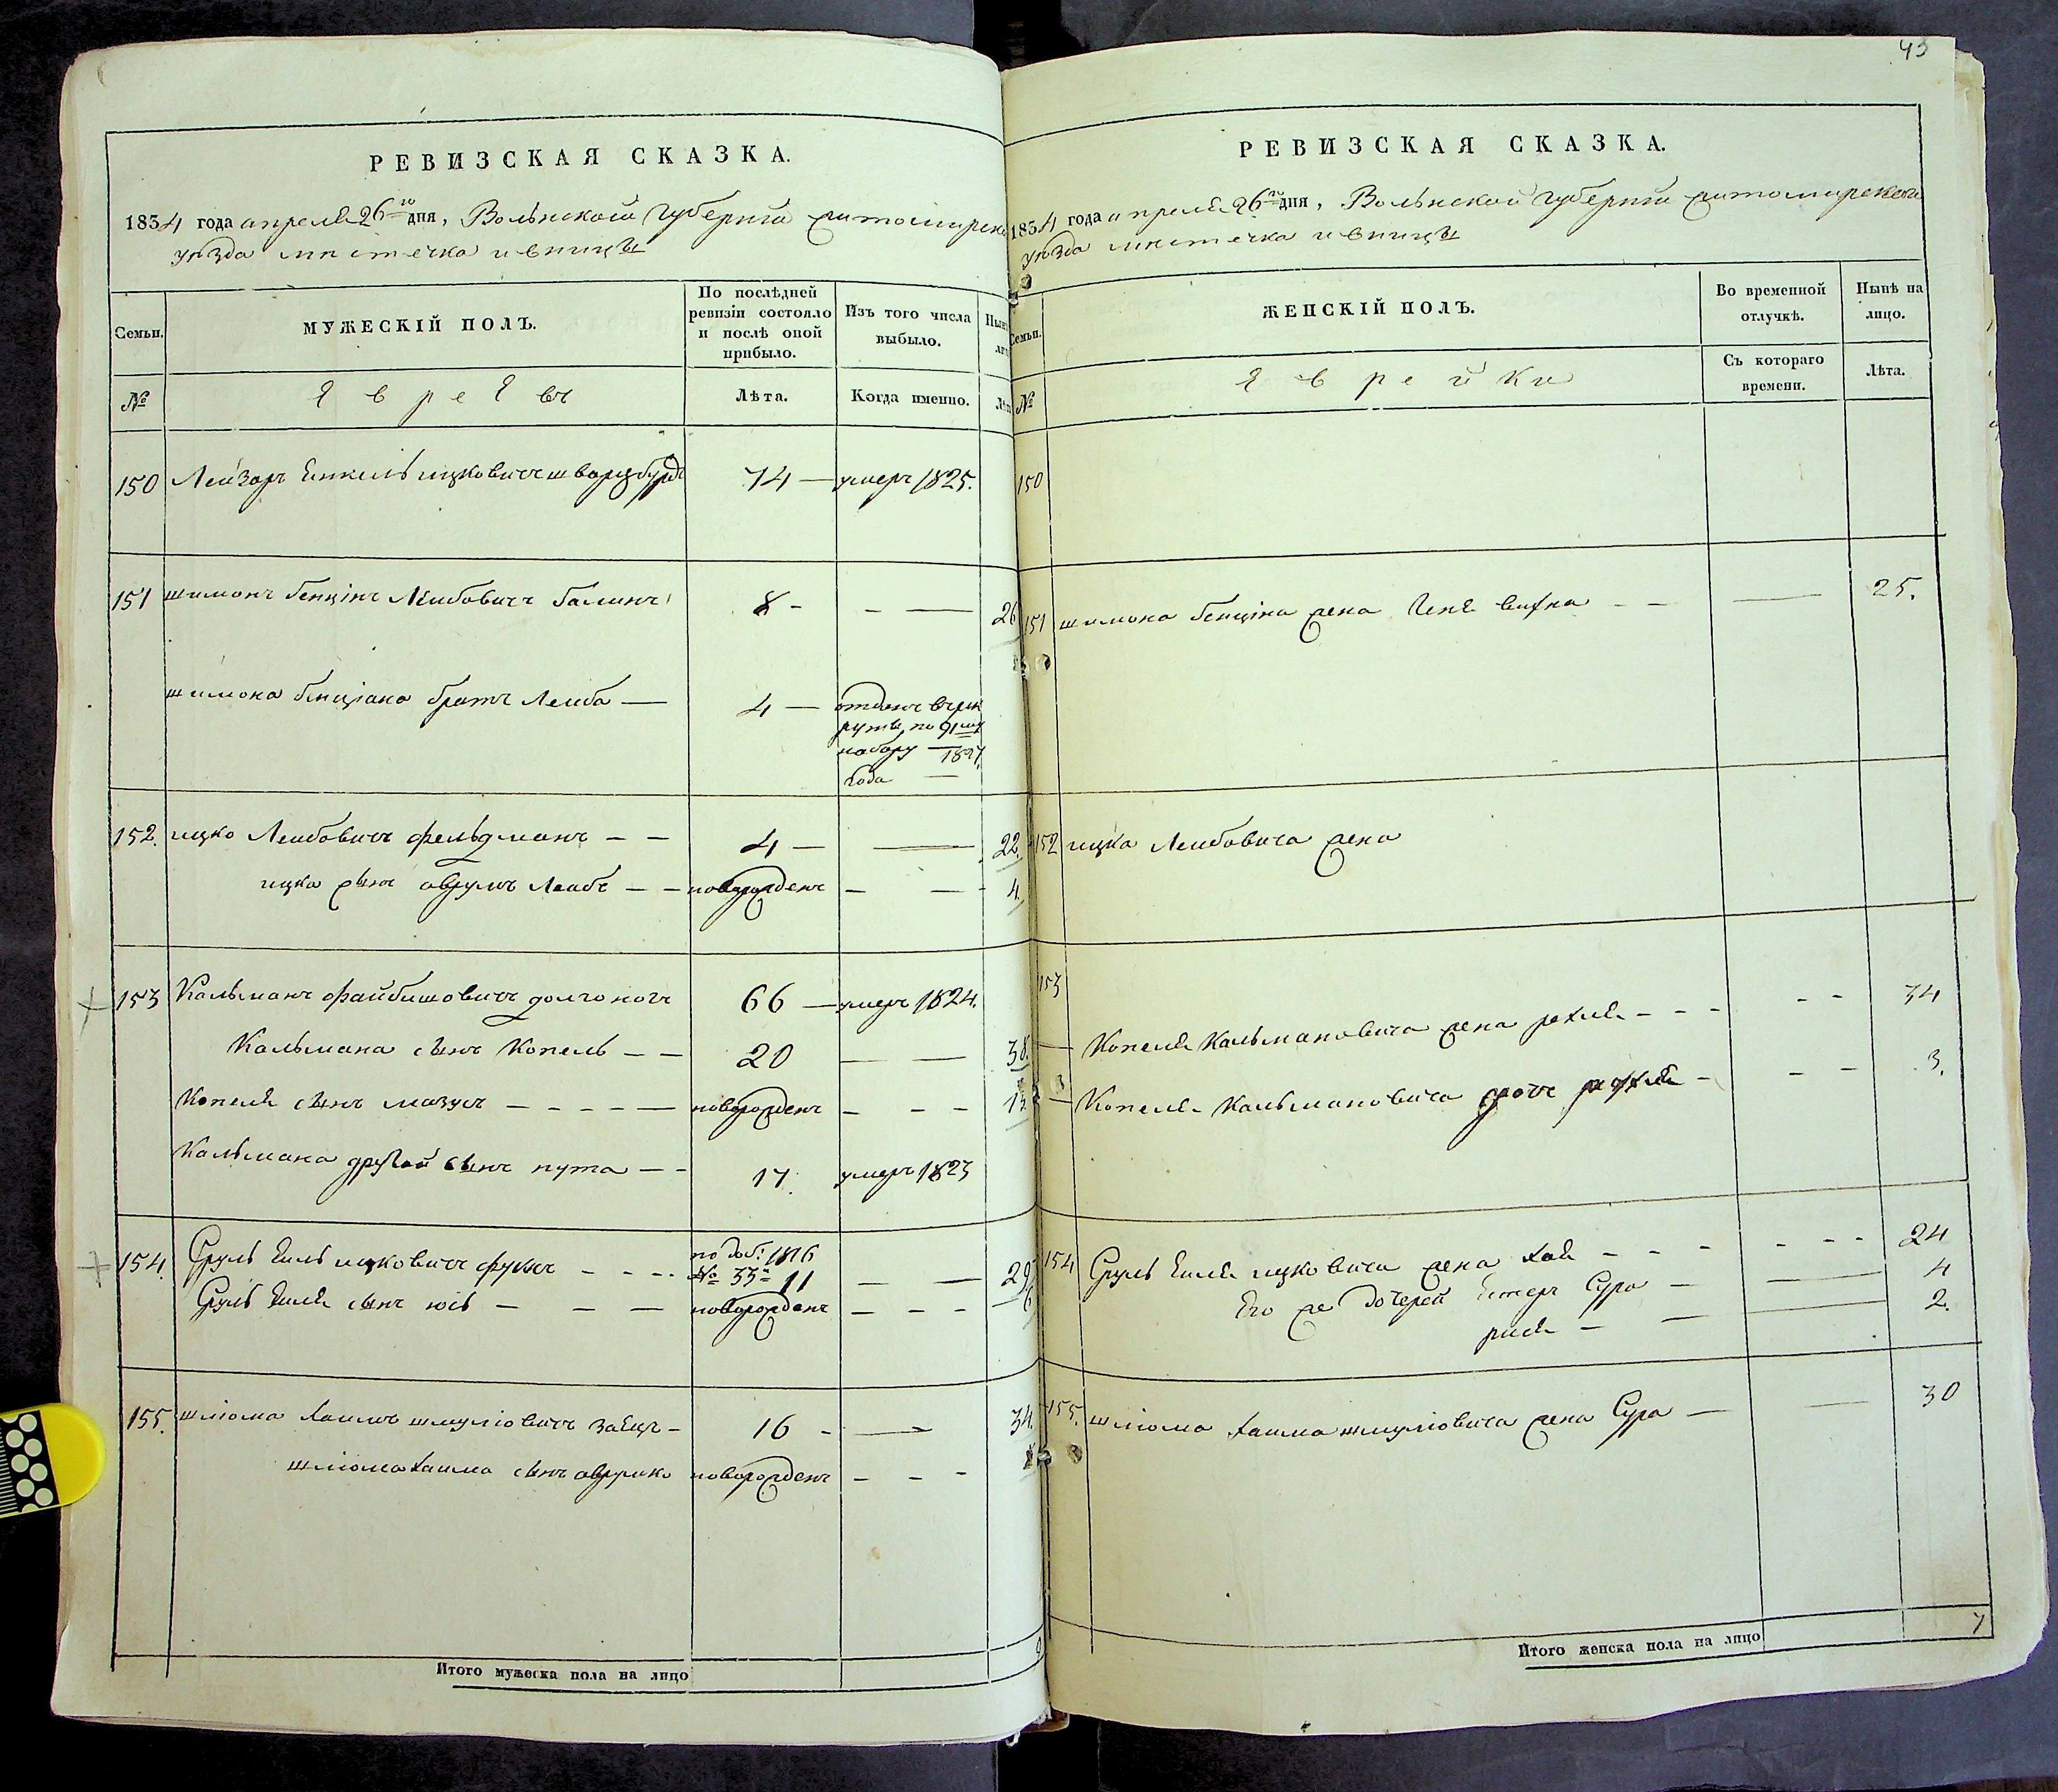 РЕВИЗСКАЯ СКАЗКА.
1834 года апреля 26го дня, Волынской губернии житомирска
уѣзда мѣстечка ивницы
Семьи.
МУЖЕСКІЙ ПОЛЪ.
По послѣдней ревизіи состояло и послѣ оной прибыло.
Изъ того числа выбыло.
№
Евреевъ
Лѣта.
Когда именно.
150 Лейзоръ Енкель ицковичъ шварцбурдъ 74 — умеръ 1825.
151 шимонъ бенцінъ Леибовичъ балинъ 8 - - — 26
шимона бенціана братъ Леиба — 4 — отданъ въ рек
руты по 91му
набору — 1827
года —
152. ицко Леибовичъ фельдманъ — — 4 — — 22.
ицка сынъ аврумъ Леибъ — — новорожденъ — — 4.
153 Кальманъ файбишовичъ долгоногъ 66 — умеръ 1824.
Кальмана сынъ Копель — — 20 — — 38.
Копеля сынъ мазусъ — — — — новорожденъ - - - 13
Кальмана другой сынъ нута — - 17. умеръ 1823
154. Сруль Ейль ицковичъ фуксъ - - - по доб: 1816
№ 33й 11 — — 29
Сруль Ейля сынъ юсь — — — новорожденъ — - - 6
155. шліома хаимъ шмуліовичъ заецъ - 16 - — 34.
шліома хаима сынъ аврумко новорожденъ - - -
Итого мужеска пола на лицо 9
43
РЕВИЗСКАЯ СКАЗКА.
1834 года апреля 26го дня, Волынской губерніи житомирскаго
уѣзда мѣстечка ивницы
Семьи.
ЖЕНСКІЙ ПОЛЪ.
Во временной отлучкѣ.
Нынѣ на лицо.
№
Еврейки
Съ котораго времени.
Лѣта.
150
151 шимона бенціна жена Геня — — — 25.
152 ицка Леибовича жена
153
Копеля Кальмановича жена рехля - - - - - 34
Копеля Кальмановича дочь - - - 3.
154 Сруль Ейля ицковича жена хая - - - - - - 24
Его же дочерей Естеръ Сура — — 4
рися — — — 2.
155. шліома хаима шмуліовича жена Сура — — 30
Итого женска пола на лицо 7